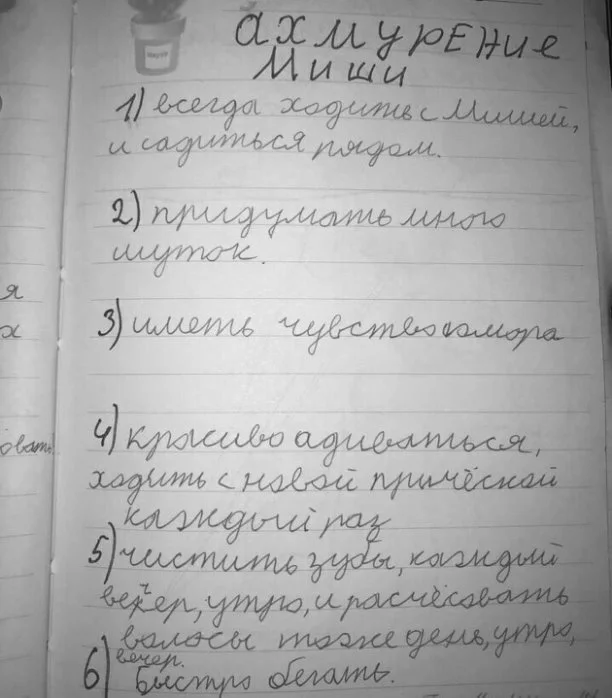 АХМУРЕНИЕ
МИШИ
1) всегда ходить с Мишей,
и садиться рядом.
2) придумать много
шуток.
3) иметь чувство юмора
4) красиво адиваться,
ходить с новой причёской
каждый раз
5) чистить зубы, каждый
вечер, утро, и расчёсовать
волосы тоже день, утро,
вечер.
6) Быстро бегать.
я
х
овать